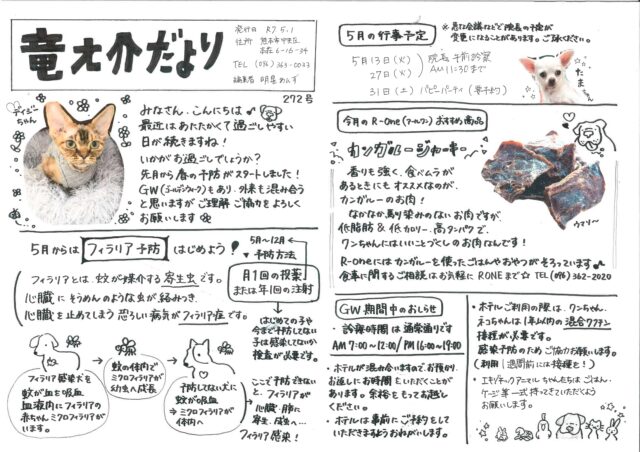 竜之介だより
発行日 R7.5.1
住所 熊本市中央区
本荘6-16-34
TEL (096)363-0033
編集者 明星あんず
272号
デイジーちゃん
みなさん、こんにちは♪
最近はあたたかくて過ごしやすい
日が続きますね!
いかがお過ごしでしょうか?
先月から春の予防がスタートしました!
GW(ゴールデンウィーク)もあり、外来も混み合う
と思いますがご理解ご協力をよろしく
お願いします
5月からは フィラリア予防 はじめよう!
フィラリアとは、蚊が媒介する寄生虫です。
心臓にそうめんのような虫が絡みつき、
心臓を止めてしまう恐ろしい病気がフィラリア症です。
5月~12月
予防方法
月1回の投薬
または年1回の注射
はじめての子や
今まで予防してない
子は感染してないか
検査が必要です。
フィラリア感染犬を
蚊が吸血
血液内にフィラリアの
赤ちゃんミクロフィラリアが
います。
蚊の体内で
ミクロフィラリアが
幼虫へ成長
予防してない犬に
蚊が吸血
⇒ミクロフィラリアが
体内へ
ここで予防できないと、フィラリアが
心臓・肺に
寄生、成长へ…
フィラリア感染!
5月の行事予定
※急な会議などで院長の予定が
変更になることがあります。ご了承ください。
5月13日(火)
27日(火)
院長 午前診察
AM11:30まで
31日(土) パピーパーティ(要予約)
たまちゃん
今月のR-One(アールワン)おすすめ商品
カンガルージャーキー
香りも強く、食べムラが
あるときにもオススメなのが、
カンガルーのお肉!
なかなか馴り染みのないお肉ですが、
低脂肪&低カロリー、高タンパクで、
ワンちゃんにはいいことづくしのお肉なんです!
R-Oneにはカンガルーを使ったごはんやおやつがそろっています♪
食事に関するご相談はお気軽にR.ONEまで☆ TEL(096)362-2020
ウマソ〜
GW期間中のおしらせ
・診療時間は通常通りです
AM 9:00~12:00/PM 16:00~19:00
・ホテルが混み合いますので、お預かり、
お返しにお時間をいただくことが
あります。余裕をもってお越し
ください。
・ホテルは事前にご予約をして
いただきますようおねがいします。
・ホテルご利用の際は、ワンちゃん、
ネコちゃんは1年以内の混合ワクチン
接種が必要です。
感染予防のためご協力お願いします。
(利用1週間前には接種を!)
・エキゾチックアニマルちゃんたちはごはん・
ケージ等一式持ってきていただくよう
お願いします。